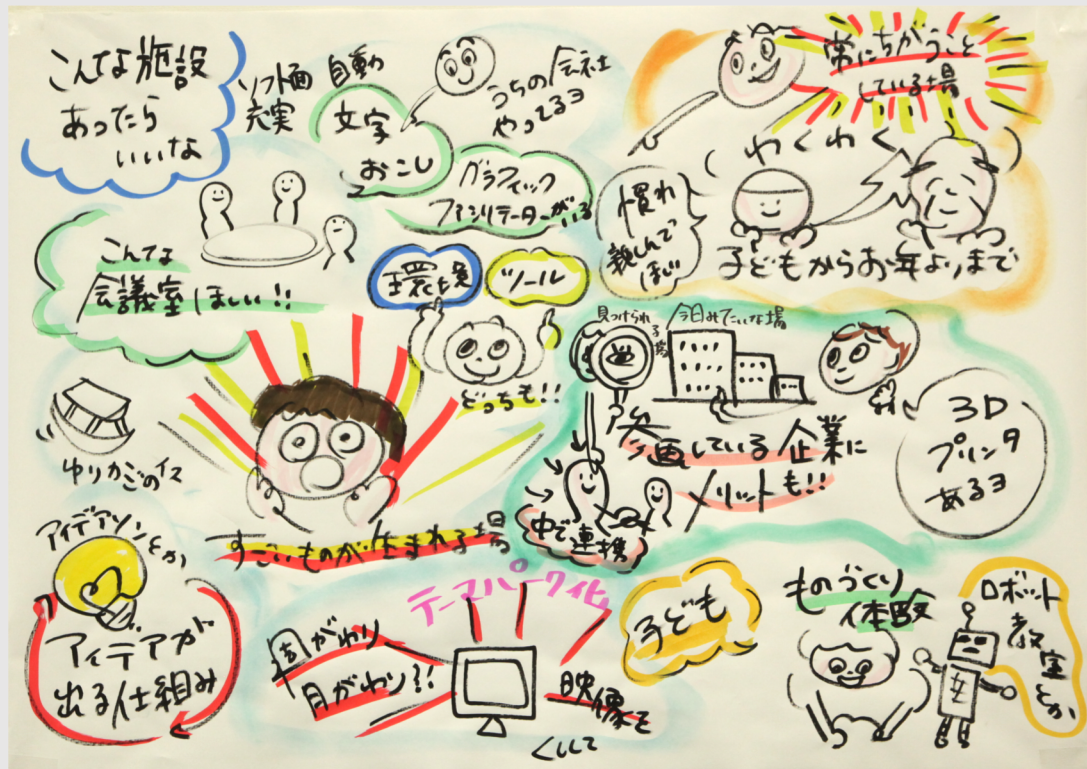 こんな施設
あったら
いいな
ソフト面
充実
自動
文字
おこし
うちの会社
やってるヨ
グラフィック
ファシリテーターがいる
常にちがうこと
している場
わくわく
慣れ
親しんで
ほしい
子どもからお年よりまで
こんな
会議室ほしい!!
環境
ツール
どっちも!!
見つけられる場
今日みたいな場
参画している企業に
メリットも!!
中で連携
3D
プリンタ
あるヨ
ゆりかごのイス
すごいものが生まれる場
アイデアソンとか
アイデアが
出る仕組み
テーマパーク化
週がわり
月がわり?!
映像を
子ども
ものづくり
体験
ロボット
教室とか